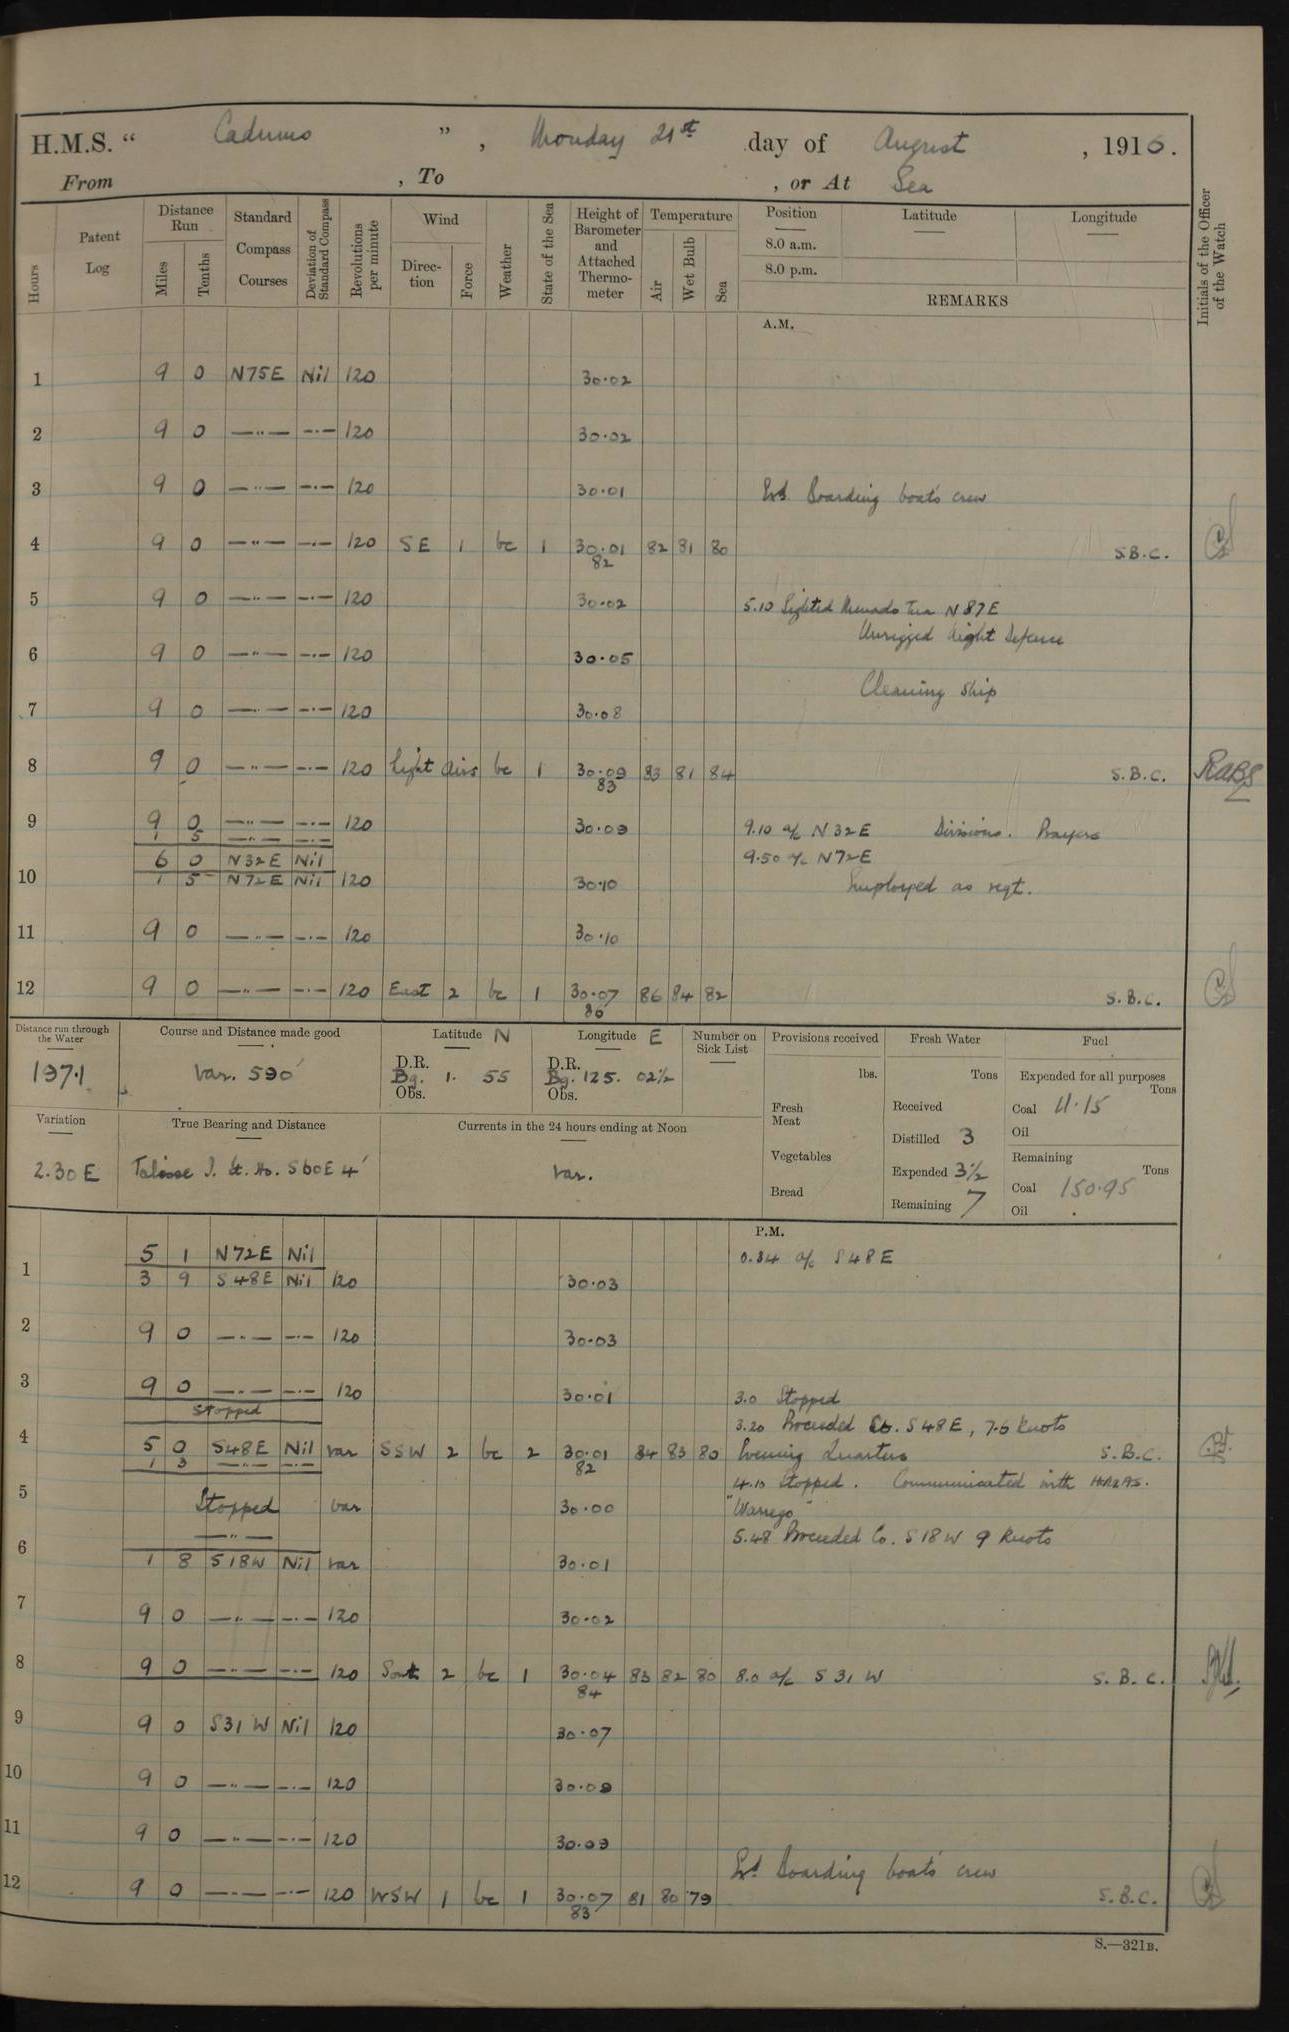 H.M.S. " Cadmus ", Monday 21st day of August, 1916.
From , To , or At Sea
Hours
Patent Log
Distance Run
Miles
Tenths
Standard Compass Courses
Deviation of Standard Compass
Revolutions per minute
Wind
Direction
Force
Weather
State of the Sea
Height of Barometer and Attached Thermometer
Temperature
Air
Wet Bulb
Sea
Position Latitude Longitude
8.0 a.m.
8.0 p.m.
REMARKS
Initials of the Officer of the Watch
A.M.
1 9 0 N75E Nil 120 30.02
2 9 0 —"— —"— 120 30.02
3 9 0 —"— —"— 120 30.01 Exd. Boarding boat's crew
4 9 0 —"— —"— 120 SE 1 bc 1 30.01 82 81 80 S.B.C.
82
5 9 0 —"— —"— 120 30.02 5.10 Sighted Menado Tua N87E
Unrigged Night Defence
6 9 0 —"— —"— 120 30.05
Cleaning Ship
7 9 0 —"— —"— 120 30.08
8 9 0 —"— —"— 120 light airs bc 1 30.09 83 81 84 S.B.C. RaBS
83
9 9 0 —"— —"— 120 30.09 9.10 a/c N32E Divisions. Prayers
1 5 —"— —"—
6 0 N32E Nil 9.50 a/c N72E
10 1 5 N72E Nil 120 30.10 Employed as reqt.
11 9 0 —"— —"— 120 30.10
12 9 0 —"— —"— 120 East 2 bc 1 30.07 86 84 82 S.B.C.
86
Distance run through the Water
197.1
Course and Distance made good
Var. S90'
Latitude N
D.R.
Bg. 1. 55
Obs.
Longitude E
D.R.
Bg. 125. 02½
Obs.
Number on Sick List
Provisions received
lbs.
Fresh Meat
Vegetables
Bread
Fresh Water
Tons
Received
Distilled 3
Expended 3½
Remaining 7
Fuel
Expended for all purposes
Tons
Coal 11.15
Oil
Remaining
Tons
Coal 150.95
Oil
Variation
2.30 E
True Bearing and Distance
Talisse I. Lt. Ho. S60E 4'
Currents in the 24 hours ending at Noon
Var.
P.M.
5 1 N72E Nil 0.34 a/c S48E
1 3 9 S48E Nil 120 30.03
2 9 0 —"— —"— 120 30.03
3 9 0 —"— —"— 120 30.01 3.0 Stopped
Stopped 3.20 Proceeded Co. S48E, 7.5 Knots
4 5 0 S48E Nil var SSW 2 bc 2 30.01 84 83 80 Evening Quarters S.B.C.
82
1 3 —"— —"— 4.10 Stopped. Communicated with HMAS.
5 Stopped var 30.00 "Warrego"
—"— 5.48 Proceeded Co. S18W 9 Knots
6 1 8 S18W Nil var 30.01
7 9 0 —"— —"— 120 30.02
8 9 0 —"— —"— 120 South 2 bc 1 30.04 83 82 80 8.0 a/c S31W S.B.C.
84
9 9 0 S31W Nil 120 30.07
10 9 0 —"— —"— 120 30.09
11 9 0 —"— —"— 120 30.09
Exd. Boarding boat's crew
12 9 0 —"— —"— 120 WSW 1 bc 1 30.07 81 80 79 S.B.C.
83
S.—321B.